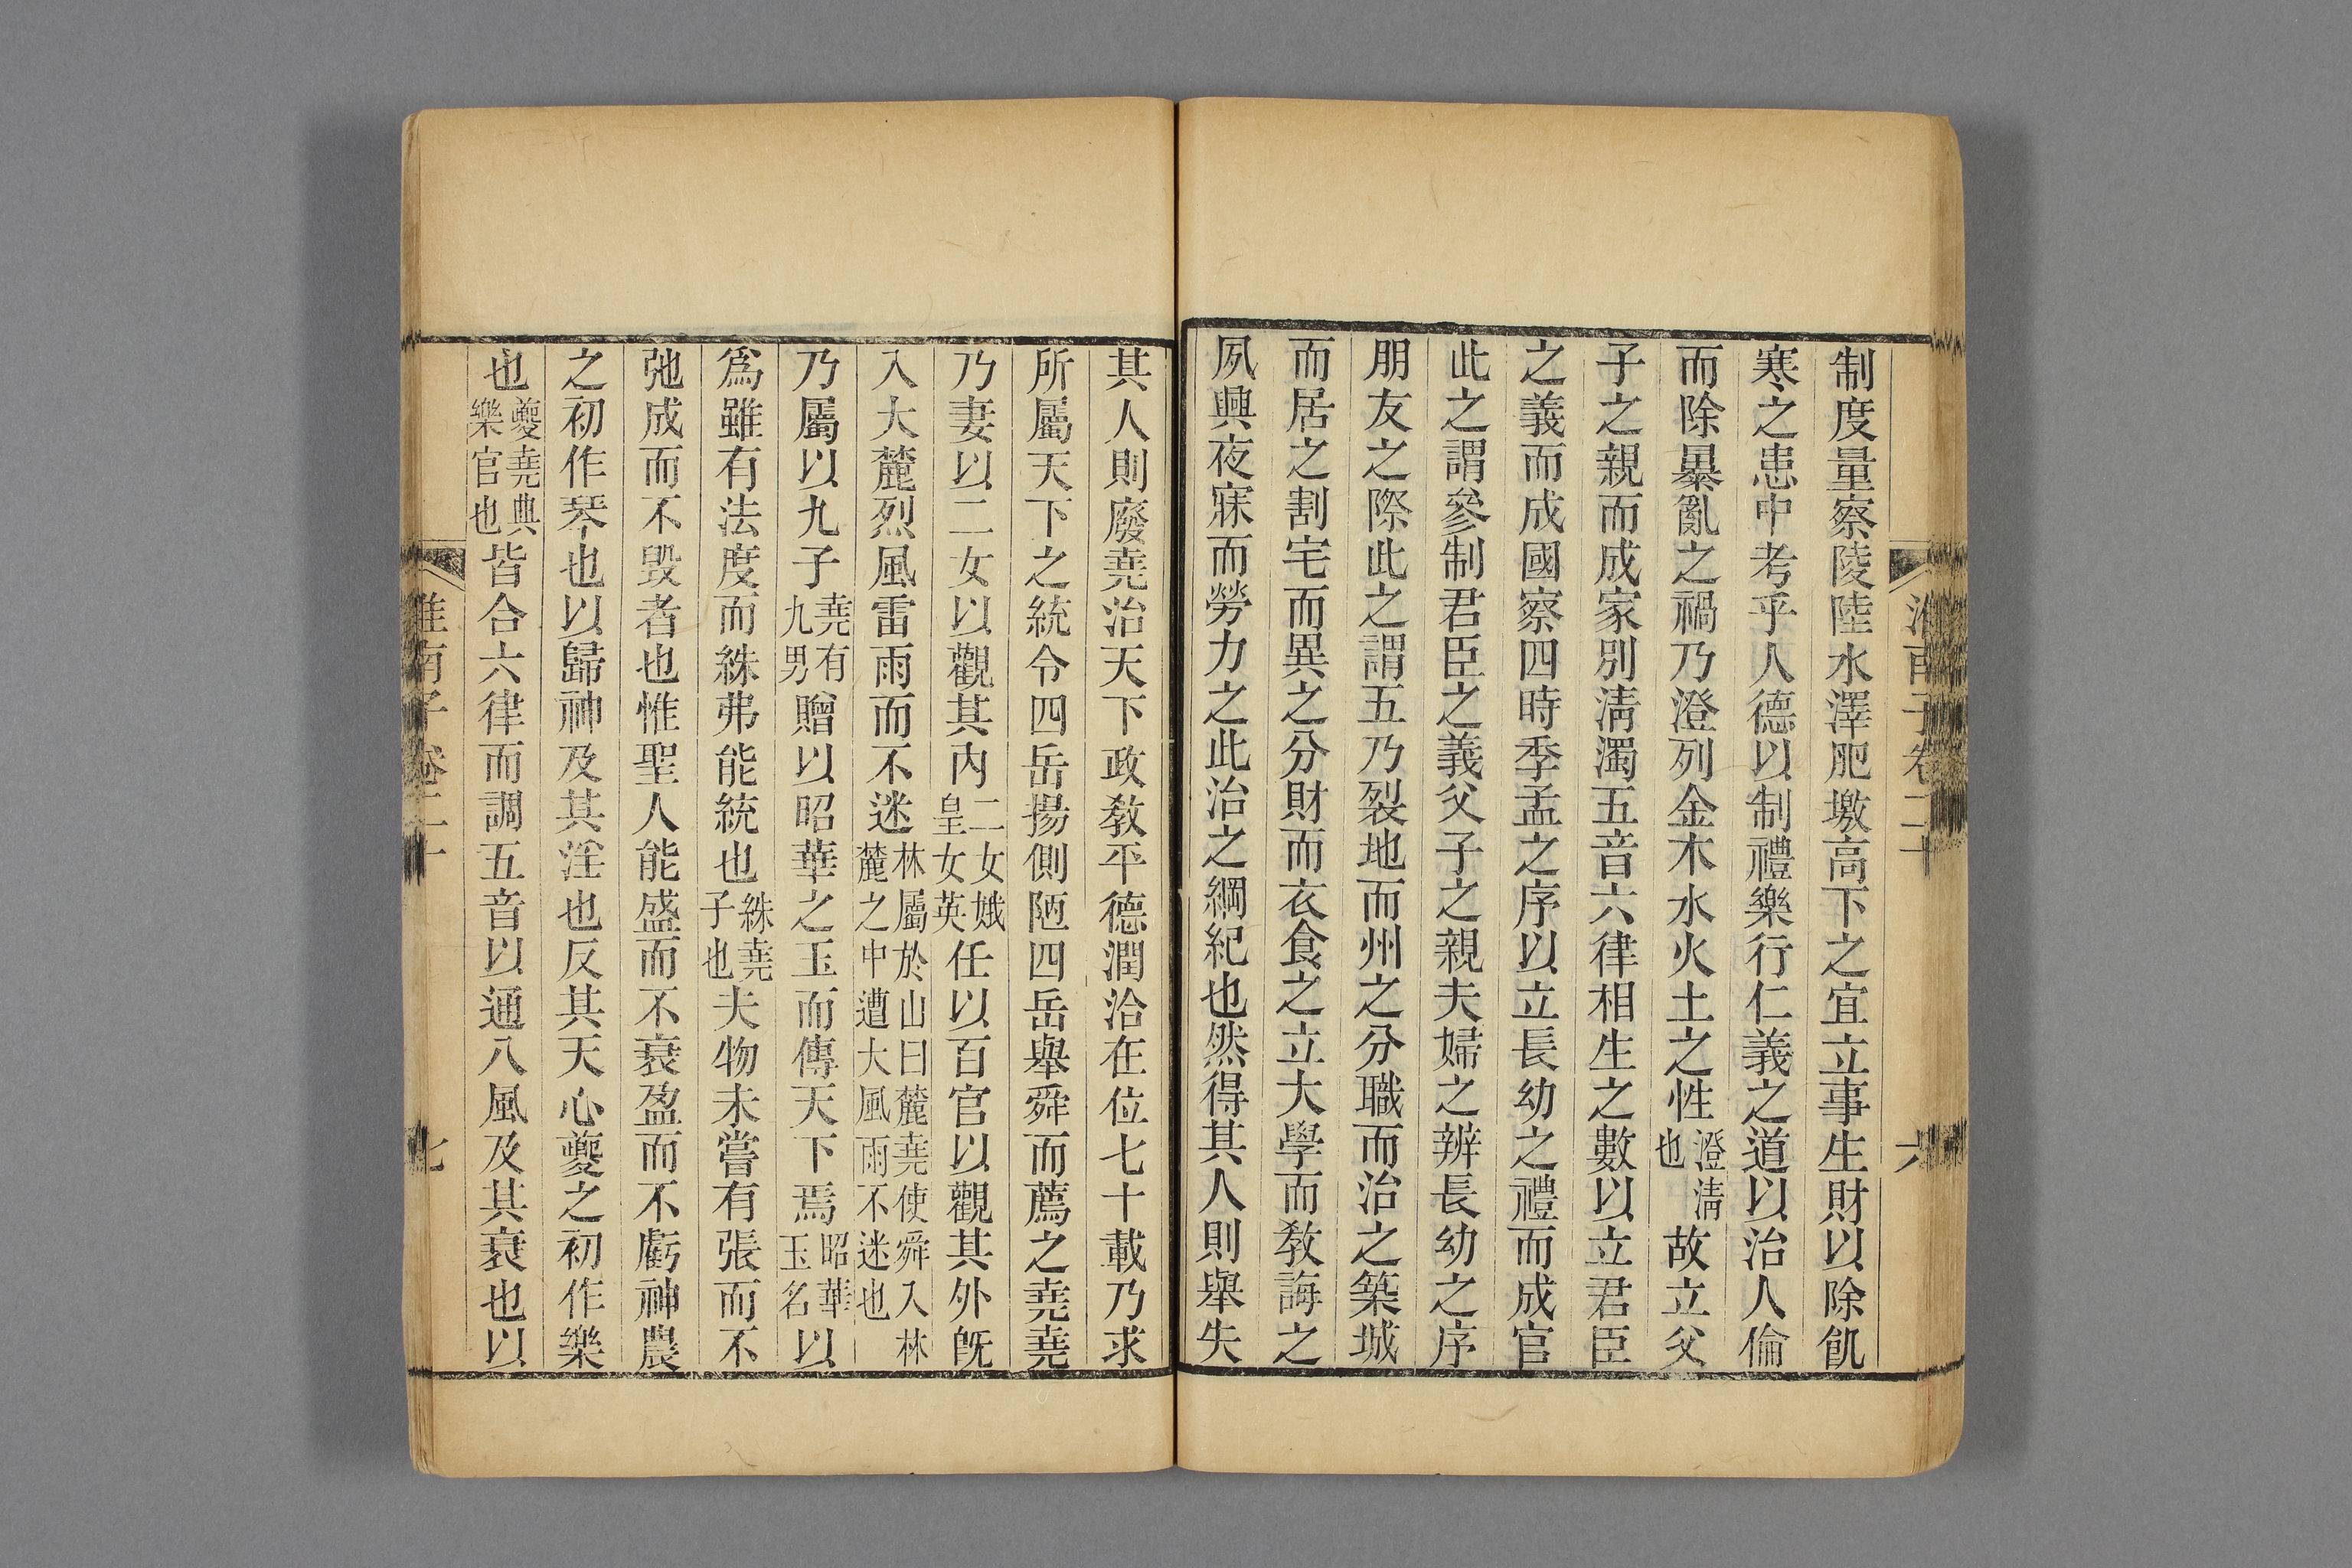 淮南子卷二十
六
制度量察陵陸水澤肥墩高下之宜立事生財以除飢
寒之患中考乎人德以制禮樂行仁義之道以治人倫
而除暴亂之禍乃澄列金木水火土之性澄清也故立父
子之親而成家別清濁五音六律相生之數以立君臣
之義而成國察四時季孟之序以立長幼之禮而成官
此之謂參制君臣之義父子之親夫婦之辨長幼之序
朋友之際此之謂五乃裂地而州之分職而治之築城
而居之割宅而異之分財而衣食之立大學而教誨之
夙興夜寐而勞力之此治之綱紀也然得其人則舉失
其人則廢堯治天下政教平德潤洽在位七十載乃求
所屬天下之統令四岳揚側陋四岳舉舜而薦之堯堯
乃妻以二女以觀其內二女娥皇女英任以百官以觀其外旣
入大麓烈風雷雨而不迷林屬於山曰麓堯使舜入林麓之中遭大風雨不迷也
乃屬以九子堯有九男贈以昭華之玉而傳天下焉昭華玉名以
爲雖有法度而絑弗能統也絑堯子也夫物未嘗有張而不
弛成而不毀者也惟聖人能盛而不衰盈而不虧神農
之初作琴也以歸神及其淫也反其天心夔之初作樂
也夔堯典樂官也皆合六律而調五音以通八風及其衰也以
淮南子卷二十
七